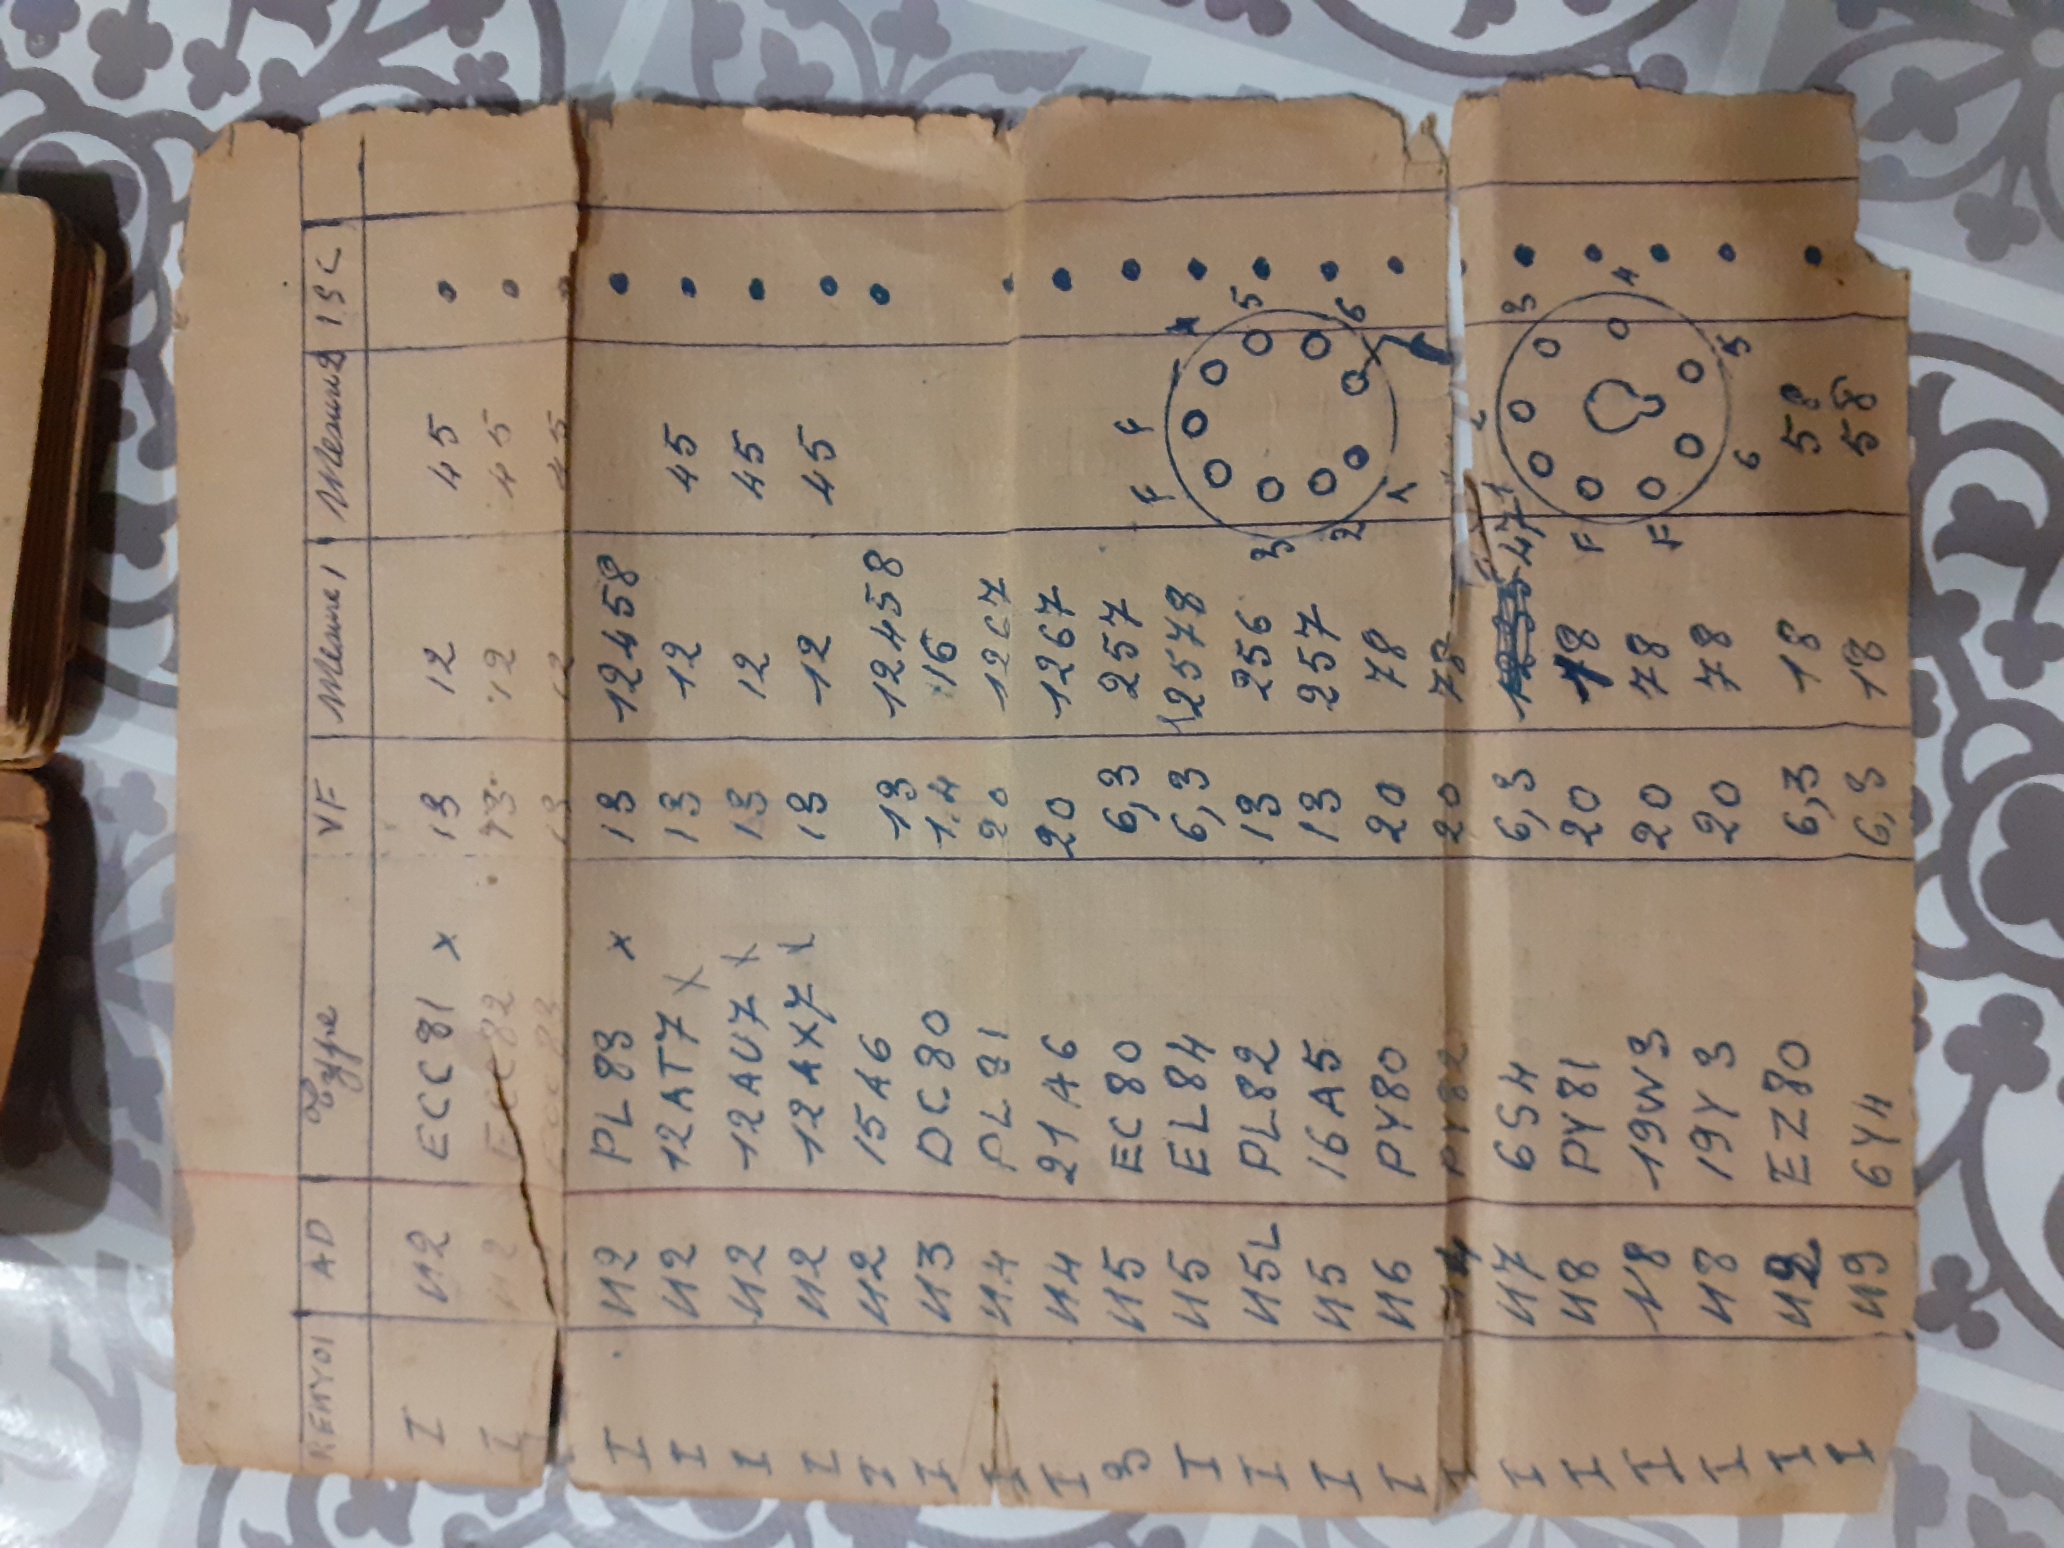 RENVOI AD Type VF Mesure 1 Mesure 2 ISC
I И2 ECC81 x 13 12 45 •
I И2 ECC82 13 12 45 •
ECC83 13 12 45
I И2 PL83 x 13 12458 •
I И2 12AT7 x 13 12 45 •
I И2 12AU7 x 13 12 45 •
I И2 12AX7 x 13 12 45 •
I И2 15A6 13 12458 •
I И3 DC80 1.4 16
I И4 PL81 20 1267 •
I И4 21A6 20 1267 •
3 И5 EC80 6,3 257 •
I И5 EL84 6,3 12578 •
I И5 PL82 13 256 •
I И5 16A5 13 257 •
I И6 PY80 20 78 •
I PY82 20 78
I И7 6S4 6,3 •
I И8 PY81 20 78 •
I И8 19W3 20 78 •
I И8 19Y3 20 78 •
I И9 EZ80 6,3 18 58 •
I И9 6Y4 6,3 18 58
1 2 3 F F 4 5 6
F F 1 2 3 4 5 6